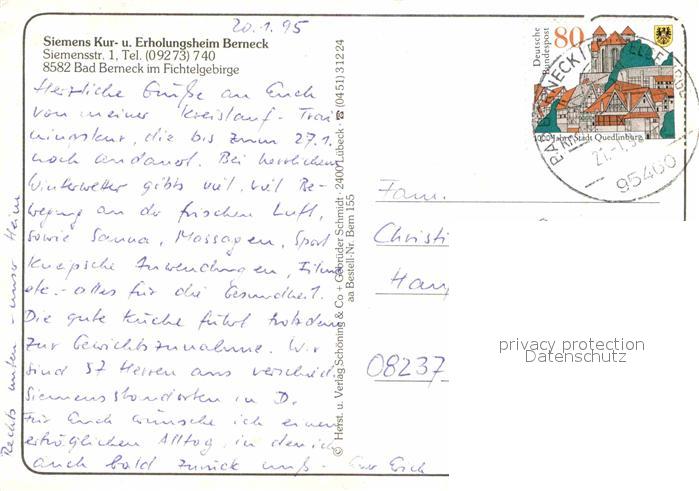 20.1.95
Siemens Kur- u. Erholungsheim Berneck
Siemensstr. 1, Tel. (0 92 73) 7 40
8582 Bad Berneck im Fichtelgebirge
Herzliche Grüße an Euch
von meiner Kreislauf-Trai-
ningskur, die bis zum 27.1.
noch andauert. Bei herrlichem
Winterwetter gibts viel, viel Be-
wegung an der frischen Luft,
sowie Sauna, Massagen, Sport
Kneipsche Anwendungen, Filme
etc. - alles für die Gesundheit.
Die gute Küche führt trotzdem
zur Gewichtszunahme. Wir
sind 57 Herren aus verschied.
Siemensstandorten in D.
Für Euch wünsche ich einen
erträglichen Alltag, in den ich
auch bald zurück muß - Euer
Rechts unten - unser Heim
© Herst. u. Verlag Schöning & Co + Gebrüder Schmidt · 2400 Lübeck · ☎ (04 51) 3 12 24
aa Bestell-Nr. Bern 155
Deutsche Bundespost
80
1000 Jahre Stadt Quedlinburg
BAD BERNECK
95460
Fam.
Christi
08237
privacy protection
Datenschutz